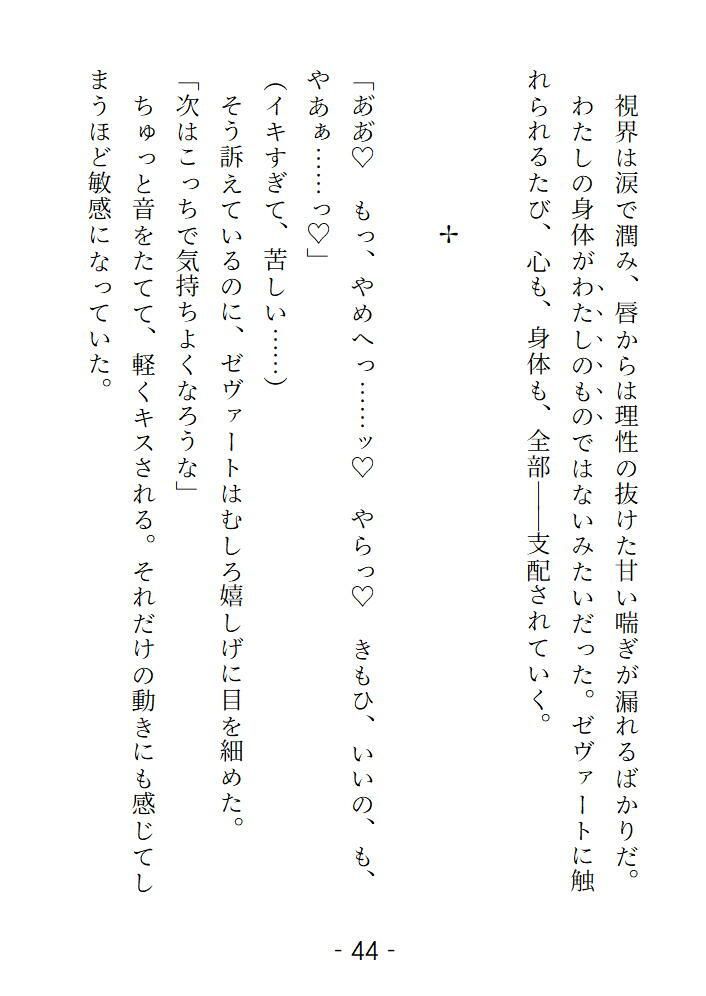 視界は涙で潤み、唇からは理性の抜けた甘い喘ぎが漏れるばかりだ。
　わたしの身体がわたしのものではないみたいだった。ゼヴァートに触
れられるたび、心も、身体も、全部――支配されていく。
✢
「あ゛あ゛♡　もっ、やめへっ……ッ♡　やらっ♡　きもひ、いいの、も、
やあぁ……っ♡」
（イキすぎて、苦しい……）
　そう訴えているのに、ゼヴァートはむしろ嬉しげに目を細めた。
「次はこっちで気持ちよくなろうな」
　ちゅっと音をたてて、軽くキスされる。それだけの動きにも感じてし
まうほど敏感になっていた。
- 44 -